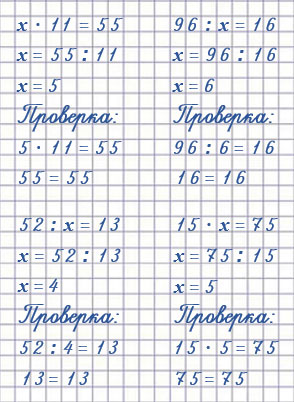 x · 11 = 55
x = 55 : 11
x = 5
Проверка:
5 · 11 = 55
55 = 55
96 : x = 16
x = 96 : 16
x = 6
Проверка:
96 : 6 = 16
16 = 16
52 : x = 13
x = 52 : 13
x = 4
Проверка:
52 : 4 = 13
13 = 13
15 · x = 75
x = 75 : 15
x = 5
Проверка:
15 · 5 = 75
75 = 75